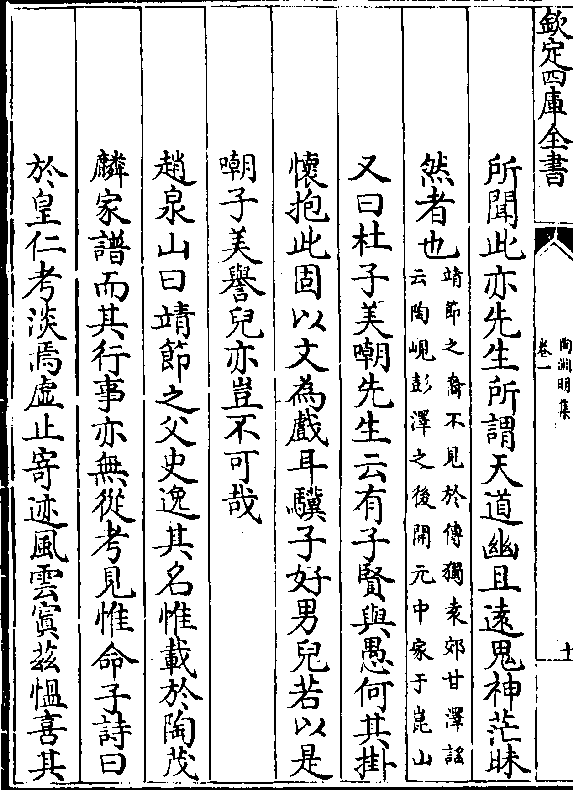 欽定四庫全書
陶淵明集
卷一
十
所聞此亦先生所謂天道幽且遠鬼神茫昧
然者也
靖節之裔不見於傳獨袁郊甘澤謠
云陶峴彭澤之後開元中家于崑山
又曰杜子美嘲先生云有子賢與愚何其掛
懷抱此固以文為戲耳驥子好男兒若以是
嘲子美譽兒亦豈不可哉
趙泉山曰靖節之父史逸其名惟載於陶茂
麟家譜而其行事亦無從考見惟命子詩曰
於皇仁考淡焉虛止寄迹風雲寘兹愠喜其